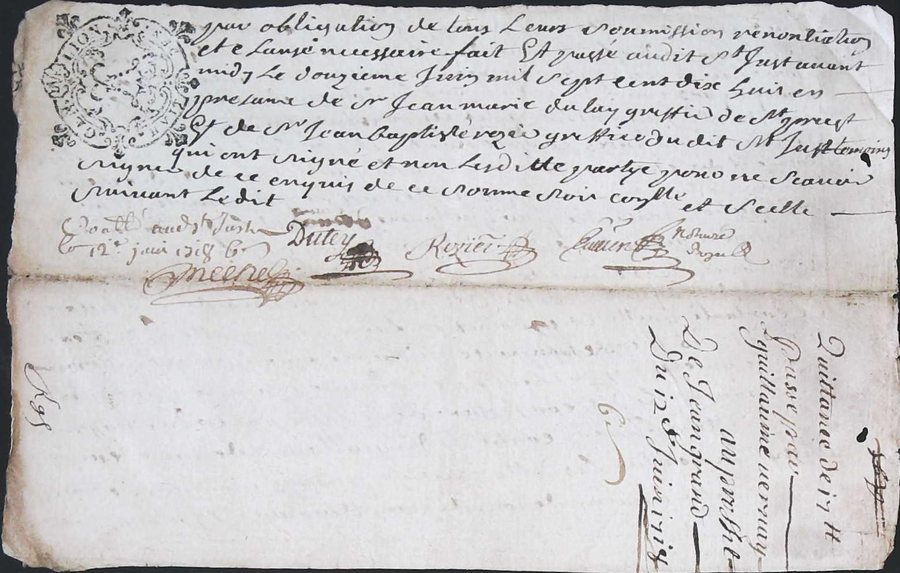 par obligation de tous Leurs soumission renontiation
et clause necessaire fait Et passé audit St Just avant
midy Le douzieme Juin mil sept cent dix huit en
presance de Sr Jean marie dulay greffier de St priest
Et de Sr Jean Baptiste rozié greffier dudit St Just temoins
qui ont signé et non Lesditte partye pour ne scavoir
signer de ce enquis de ce somme soir conlle
suivant Ledit et scelle
audt St Just
12e juin 1718
Duley
Rozier
Notaire
Quittance de 17 ff
passé par
guillaume vernay
au proffit
De Jean grand
Du 12 Juin 1718